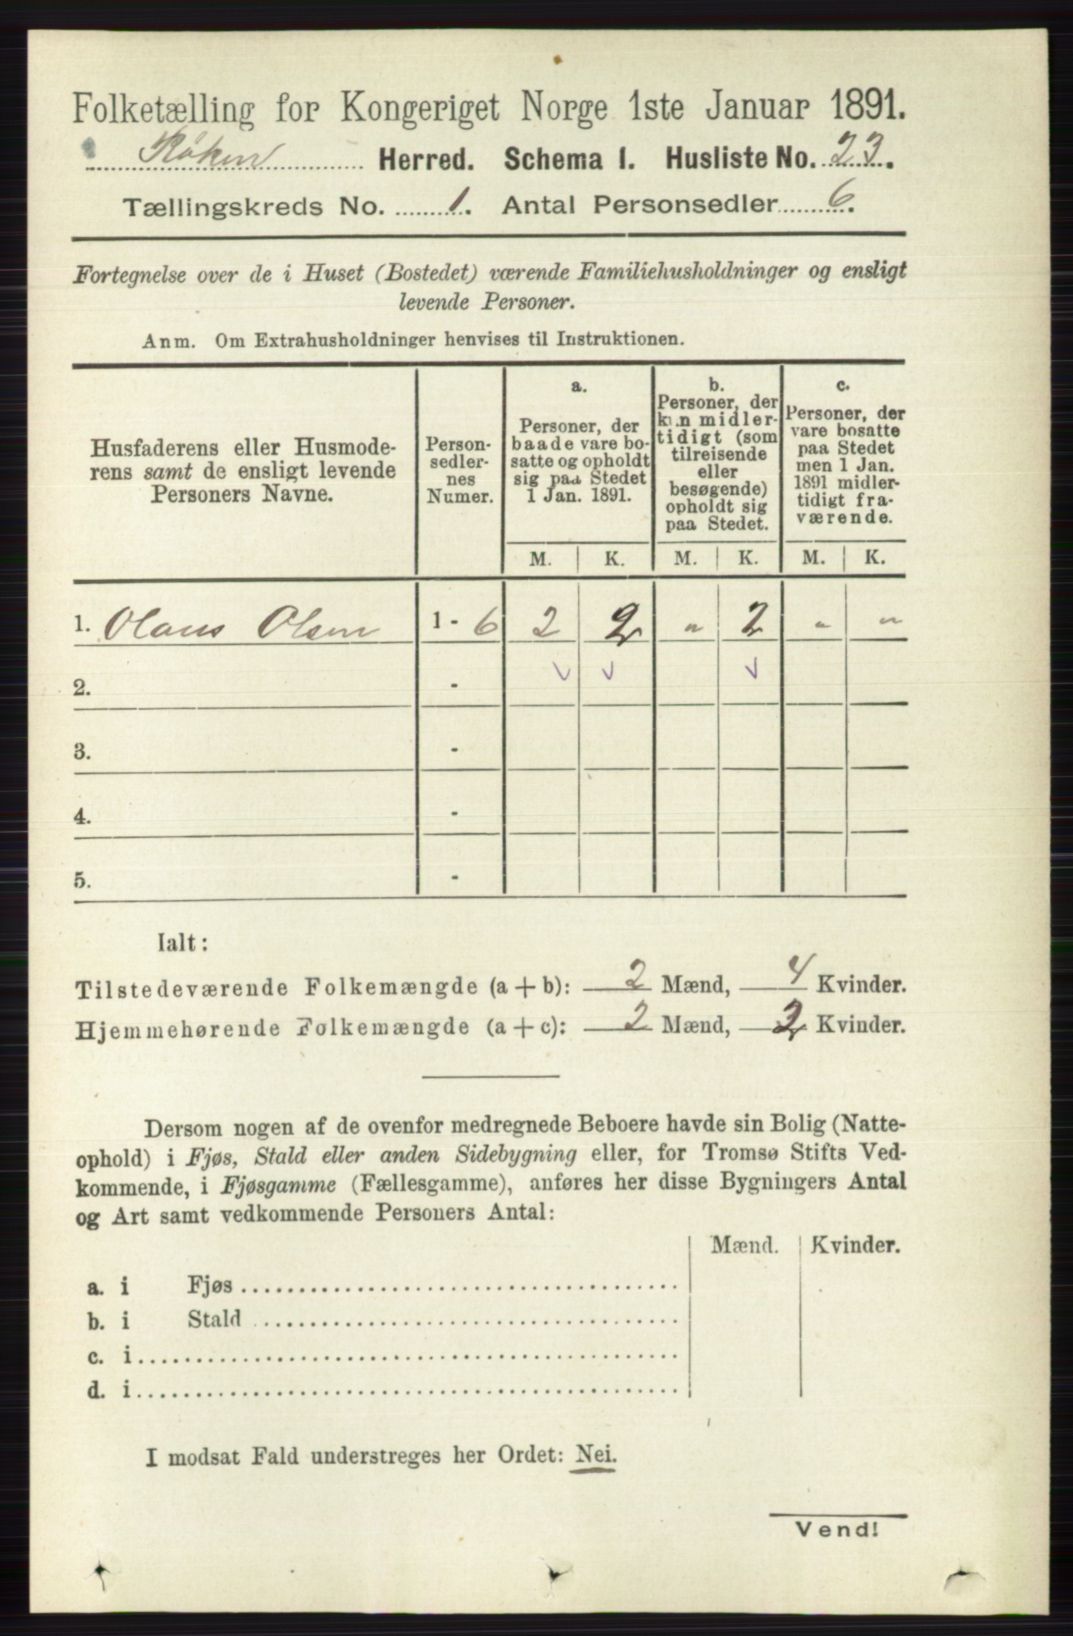 Folketælling for Kongeriget Norge 1ste Januar 1891.
Røken Herred. Schema I. Husliste No. 23.
Tællingskreds No. 1. Antal Personsedler 6.
Fortegnelse over de i Huset (Bostedet) værende Familiehusholdninger og ensligt
levende Personer.
Anm. Om Extrahusholdninger henvises til Instruktionen.
Husfaderens eller Husmode-
rens samt de ensligt levende
Personers Navne.
Person-
sedler-
nes
Numer.
a.
Personer, der
baade vare bo-
satte og opholdt
sig paa Stedet
1 Jan. 1891.
b.
Personer, der
kun midler-
tidigt (som
tilreisende
eller
besøgende)
opholdt sig
paa Stedet.
c.
Personer, der
vare bosatte
paa Stedet
men 1 Jan.
1891 midler-
tidigt fra-
værende.
M. K. M. K. M. K.
1. Olaus Olsen 1 - 6 2 2 „ 2 „ „
2. -
3. -
4. -
5. -
Ialt:
Tilstedeværende Folkemængde (a + b): 2 Mænd, 4 Kvinder.
Hjemmehørende Folkemængde (a + c): 2 Mænd, 2 Kvinder.
Dersom nogen af de ovenfor medregnede Beboere havde sin Bolig (Natte-
ophold) i Fjøs, Stald eller anden Sidebygning eller, for Tromsø Stifts Ved-
kommende, i Fjøsgamme (Fællesgamme), anføres her disse Bygningers Antal
og Art samt vedkommende Personers Antal:
Mænd. Kvinder.
a. i Fjøs
b. i Stald
c. i
d. i
I modsat Fald understreges her Ordet: Nei.
Vend!